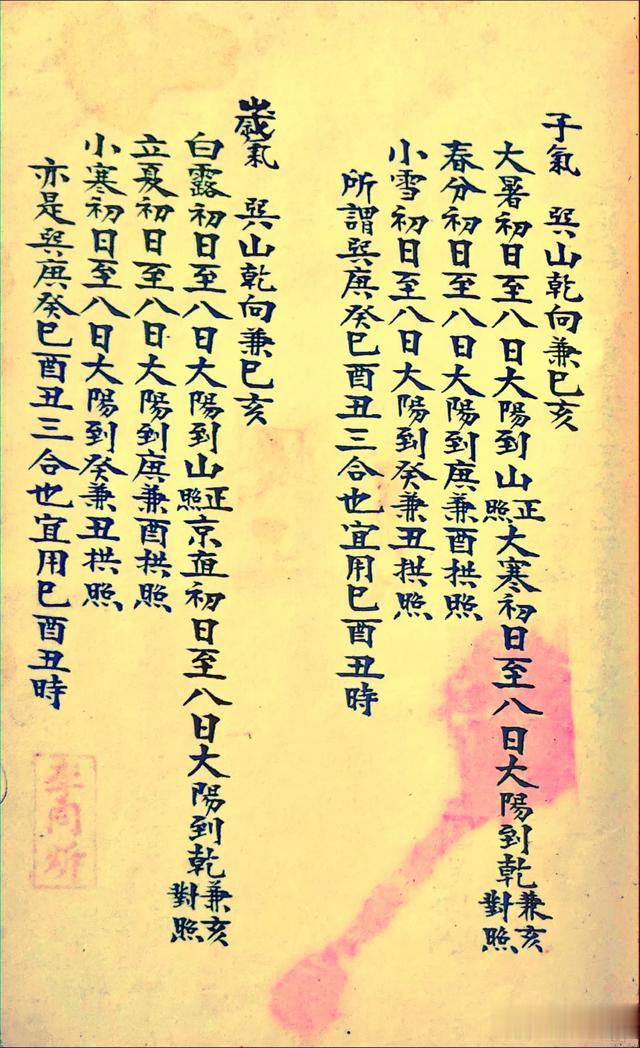 子氣 巽山乾向兼巳亥
大暑初日至八日大陽到山正照大寒初日至八日大陽到乾兼亥對照
春分初日至八日大陽到庚兼酉拱照
小雪初日至八日大陽到癸兼丑拱照
所謂巽庚癸巳酉丑三合也宜用巳酉丑時
歲氣 巽山乾向兼巳亥
白露初日至八日大陽到山正照京直初日至八日大陽到乾兼亥對照
立夏初日至八日大陽到庚兼酉拱照
小寒初日至八日大陽到癸兼丑拱照
亦是巽庚癸巳酉丑三合也宜用巳酉丑時